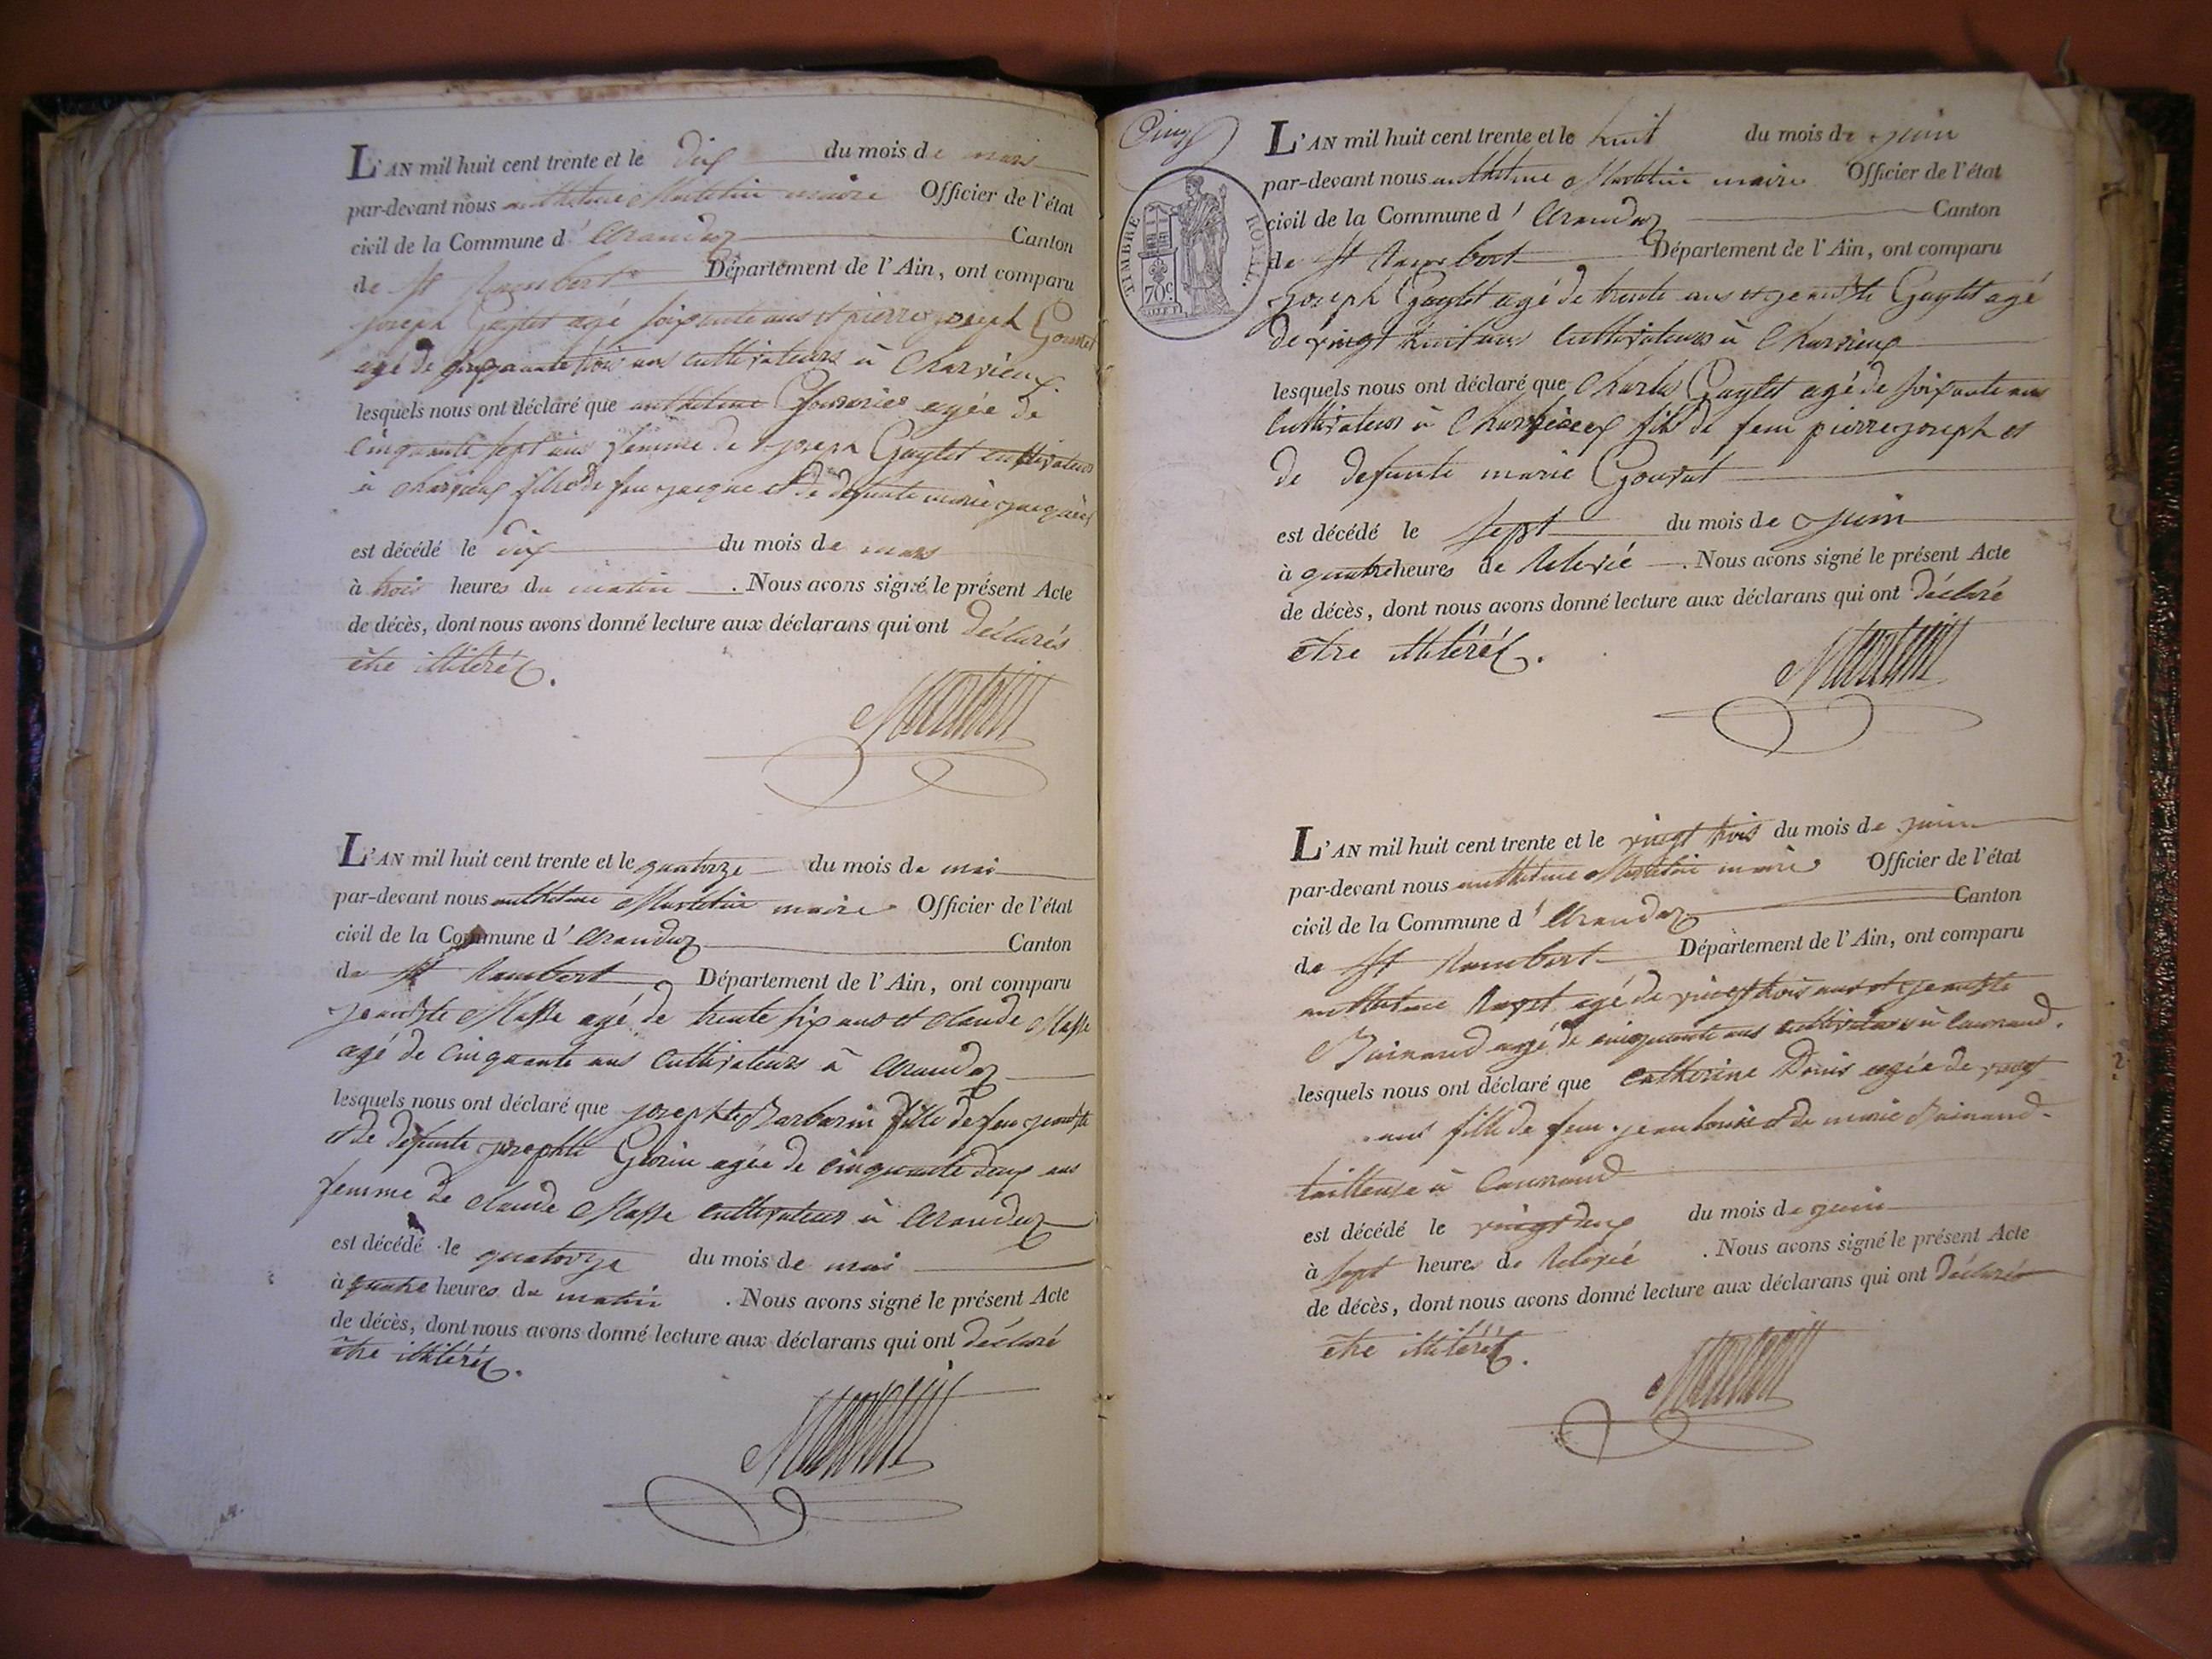 L'AN mil huit cent trente et le dix du mois de mars
par-devant nous anthelme Martin maire Officier de l'état
civil de la Commune d' Arandaz Canton
de St Rambert Département de l'Ain, ont comparu
joseph Gaylet agé soixante ans et pierre joseph
agé de cinquante trois ans cultivateurs à Charvieux
lesquels nous ont déclaré que anthelme agée de
cinquante sept ans femme de joseph Gaylet cultivateur
à Charvieux fille de feu jacque et de defunte marie
est décédé le dix du mois de mars
à trois heures du matin . Nous avons signé le présent Acte
de décès, dont nous avons donné lecture aux déclarans qui ont déclarés
être illitéréz.
Martin
L'AN mil huit cent trente et le quatorze du mois de mai
par-devant nous anthelme Martin maire Officier de l'état
civil de la Commune d' Arandaz Canton
de St Rambert Département de l'Ain, ont comparu
jean bte Masse agé de trente six ans et Claude Masse
agé de cinquante ans cultivateurs à Arandaz
lesquels nous ont déclaré que josephte Barbarin fille de feu jean bte
et de defunte josephte agée de cinquante deux ans
femme de Claude Masse cultivateur à Arandaz
est décédé le quatorze du mois de mai
à quatre heures du matin . Nous avons signé le présent Acte
de décès, dont nous avons donné lecture aux déclarans qui ont déclaré
être illitéréz.
Martin
Cinq
TIMBRE ROYAL.
70c
L'AN mil huit cent trente et le huit du mois de juin
par-devant nous anthelme Martin maire Officier de l'état
civil de la Commune d' Arandaz Canton
de St Rambert Département de l'Ain, ont comparu
joseph Gaylet agé de trente ans et jean bte Gaylet agé
de vingt huit ans cultivateurs à Charvieux
lesquels nous ont déclaré que Charles Gaylet agé de soixante ans
cultivateur à Charvieux fils de feu pierre joseph et
de defunte marie
est décédé le sept du mois de juin
à quatre heures de Relevé . Nous avons signé le présent Acte
de décès, dont nous avons donné lecture aux déclarans qui ont déclaré
être illitéréz.
Martin
L'AN mil huit cent trente et le vingt trois du mois de juin
par-devant nous anthelme Martin maire Officier de l'état
civil de la Commune d' Arandaz Canton
de St Rambert Département de l'Ain, ont comparu
anthelme agé de vingt trois ans et jean bte
agé de cinquante ans cultivateurs à
lesquels nous ont déclaré que Catherine agée de vingt
ans fille de feu jean louis et de marie
tailleuse à
est décédé le vingt deux du mois de juin
à sept heures de Relevé . Nous avons signé le présent Acte
de décès, dont nous avons donné lecture aux déclarans qui ont déclaré
être illitéréz.
Martin